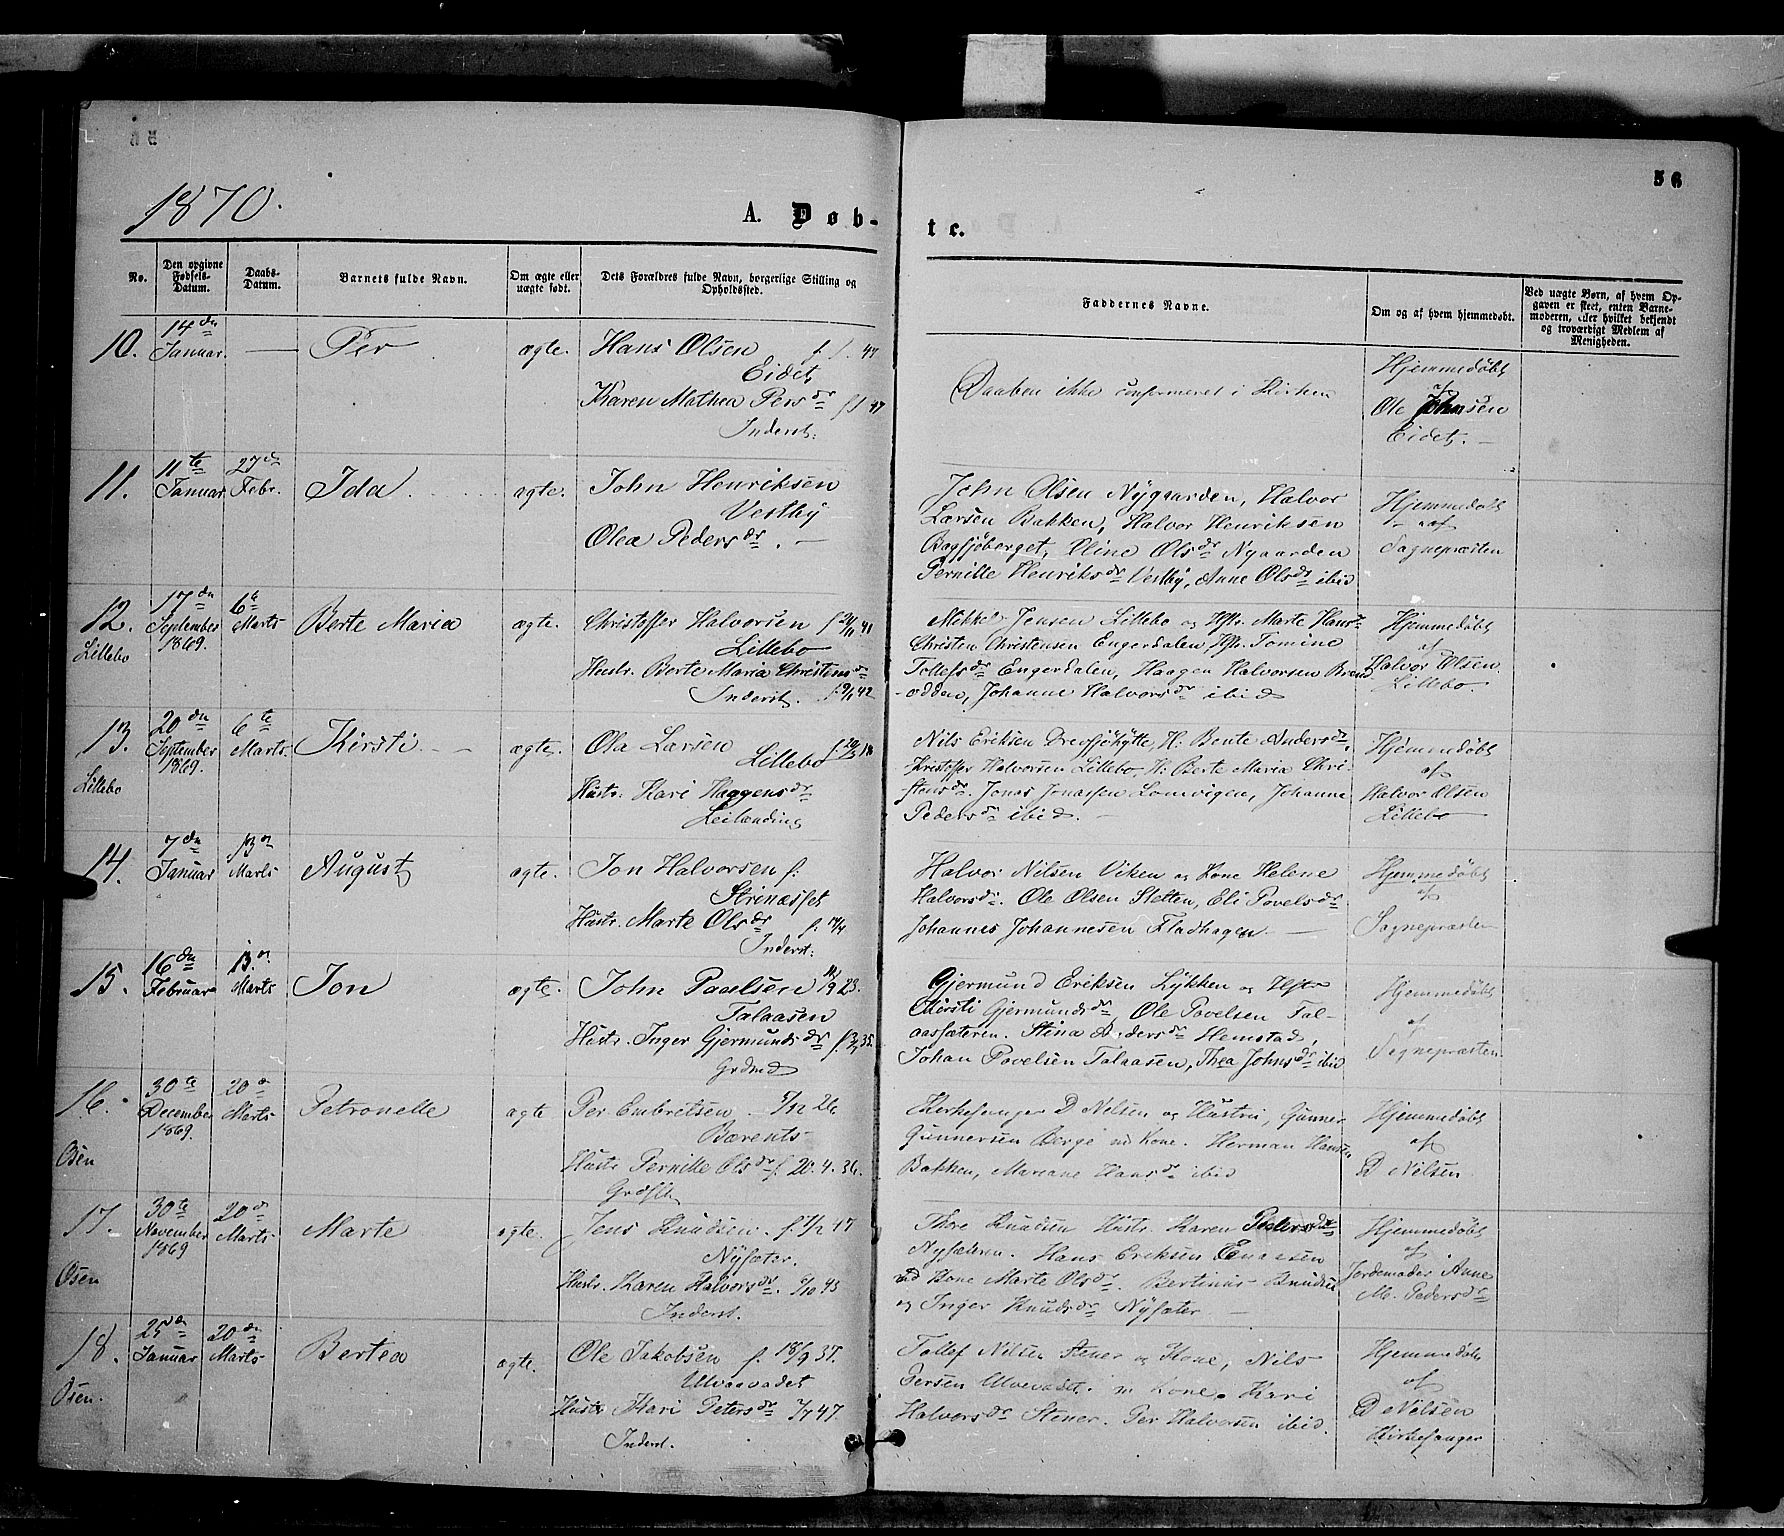 56
1870.
A. Døb-
te.
No.
Den opgivne Fødsels-Datum.
Daabs-Datum.
Barnets fulde Navn.
Om ægte eller uægte født.
Dets Forældres fulde Navn, borgerlige Stilling og Opholdssted.
Faddernes Navne.
Om og af hvem hjemmedøbt.
Ved uægte Børn, af hvem Op-
gaven er skeet, enten Barne-
moderen, eller hvilket bekjendt
og troværdigt Medlem af
Menigheden.
10. 14de Januar. — Per ægte.
Hans Olsen
Eidet
Karen Mathea Persdr
Inderst.
Daaben ikke confirmeret i Kirken
Hjemmedøbt
af
Ole Johnsen
Eidet. —
11. 11te Januar. 27de Febr. Ida ægte.
John Henriksen
Vestby
Olea Pedersdr. —
John Olsen Nygaarden, Halvor
Larsen Bakken, Halvor Henriksen
Bagsjøberget, Oline Olsdr Nygaarden
Pernille Henriksdr Vestby, Anne Olsdr ibid
Hjemmedøbt
af
Sognepræsten
12. Lillebo 17de September 1869. 6te Marts Berte Maria ægte.
Christoffer Halvorsen
Lillebo
Hustr. Berte Maria Christensdr
Inderst.
Mikkel Jensen Lillebo og Hstr. Marte Hansdr
Christen Christensen Engerdalen, Hstr. Tomine
Tollefsdr Engerdalen, Haagen Halvorsen Bræn
odden, Johanne Halvorsdr ibid
Hjemmedøbt
af
Halvor Olsen
Lillebo.
13. Lillebo 20de September 1869. 6te Marts. Kirsti ægte.
Ola Larsen
Lillebo
Hustr. Kari Haagensdr
Leilænding
Nils Eriksen Drevsjøhytte, H: Bente Andersdr,
Kristoffer Halvorsen Lillebo, H: Berte Maria Chri-
stensdr. Jonas Jonassen Lomvigen, Johanne
Pedersdr ibid. —
Hjemmedøbt
af
Halvor Olsen
Lillebo
14. 7de Januar 13de Marts August ægte.
Jon Halvorsen f.
Strinæsset
Hustr. Marte Olsdr
Inderst:
Halvor Nilsen Viken og Kone Helene
Halvorsdr. Ole Olsen Sletten, Eli Povelsdr
Johannes Johannesen Fladhagen. —
Hjemmedøbt
af
Sognepræsten
15. 16de Februar 13de Marts Jon ægte.
John Paalsen
Talaasen
Hustr. Inger Gjermundsdr
Grdmd
Gjermund Eriksen Lykken og Hstr
Kirsti Gjermundsdr, Ole Povelsen Tal-
aassæteren. Stina Andersdr Hemstad,
Johan Povelsen Talaasen, Thea Johnsdr ibid
Hjemmedøbt
af
Sognepræsten
16. Osen 30te December 1869. 20de Marts Petronelle ægte
Per Embretsen
Bærents-
Hustr Pernille Olsdr f. 20.4.36.
Kirkesanger D Nelsen og Hustru, Gunner
Gunnersen Berge m Kone. Herman Hansen
Bakken, Mariane Hansdr ibid
Hjemmedøbt
af
D Nelsen
17. Osen 30te November 1869 20de Marts Marte ægte.
Jens Knudsen.
Nysæter.
Hustr. Karen Halvorsdr.
Inderst.
Thore Knudsen Hustr. Karen Pedersdr
Nysæteren. Hans Eriksen Enaasen
m Kone Marte Olsdr. Bertinus Knudsen
og Inger Knudsdr Nysæter —
Hjemmedøbt
af
Jordemoder Anne
M. Pedersdr
18. Osen. 25de Januar 20de Marts Bertea ægte.
Ole Jakobsen f. 18/9 37.
Ulvaavadet
Hustr Kari Petersdr
Inderst.
Tollef Nilsen Stener og Kone, Nils
Persen Ulvevadet m Kone. Kari
Halvorsdr Stener. Per Halvorsen ibid.
Hjemmedøbt
af
D Nelsen
Kirkesanger